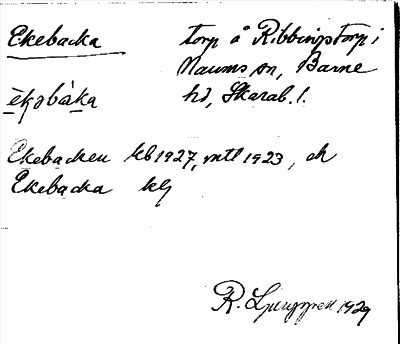 Ekebacka torp å Ribbingstorp i
Naums sn, Barne
èkəbáka hd, Skarab. l.
Ekebacken kb 1927, mtl 1923, ok
Ekebacka klg
R. Ljunggren 1929